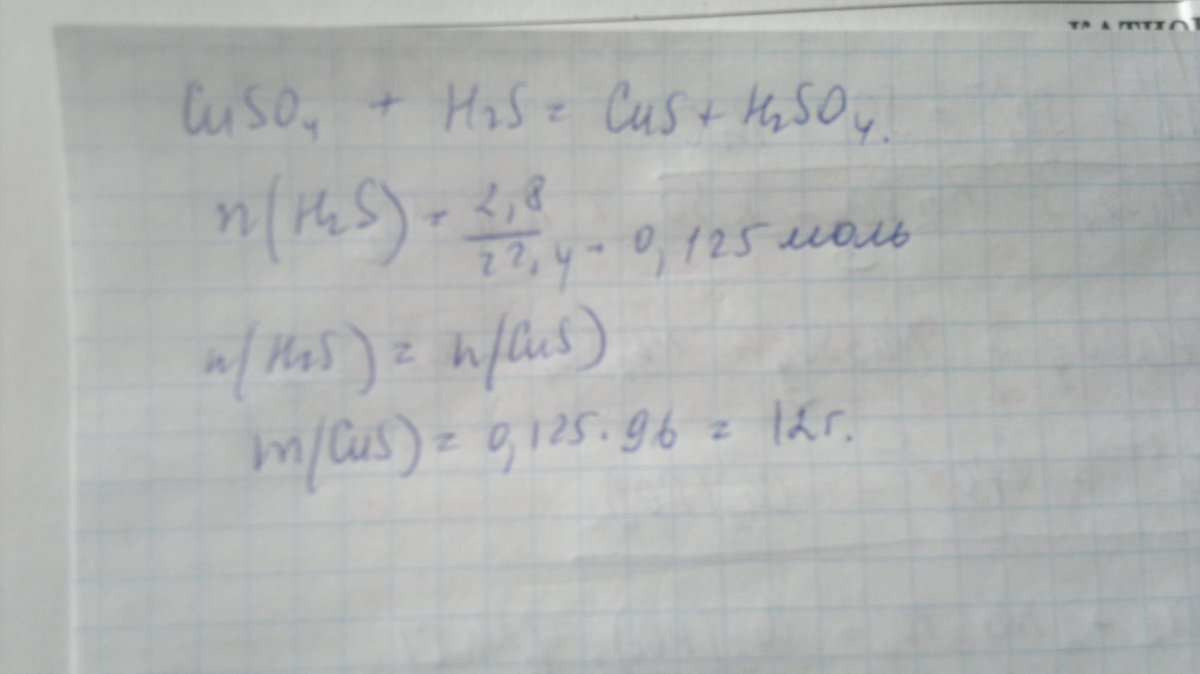 CuSO₄ + H₂S = CuS + H₂SO₄.
n(H₂S) = 2,8 / 22,4 = 0,125 моль
n(H₂S) = n(CuS)
m(CuS) = 0,125 · 96 = 12 г.